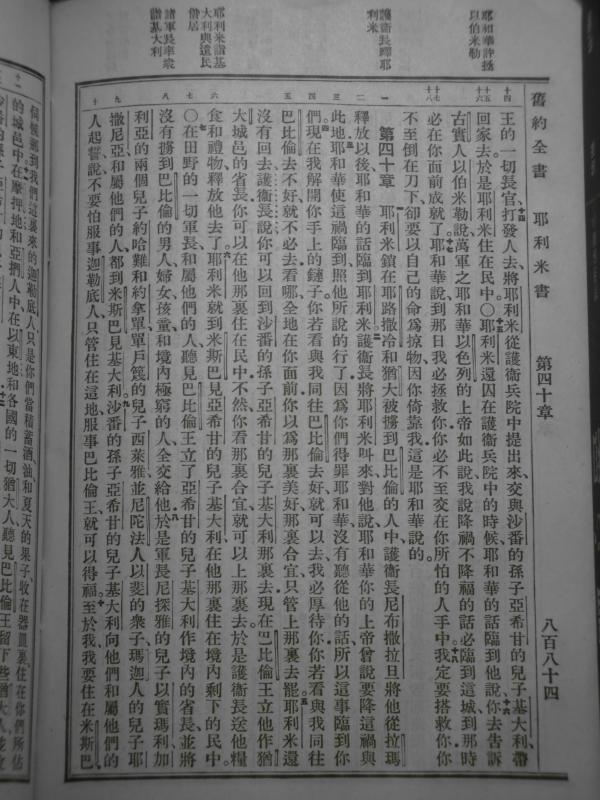 舊約全書　耶利米書　第四十章　八百八十四
耶和華許拯
以伯米勒
護衛長釋耶
利米
耶利米詣基
大利與遺民
偕居
諸軍長率衆
詣基大利
王的一切長官打發人去將耶利米從護衛兵院中提出來交與沙番的孫子亞希甘的兒子基大利帶
回家去於是耶利米住在民中〇耶利米還囚在護衛兵院中的時候耶和華的話臨到他說你去告訴
古實人以伯米勒說萬軍之耶和華以色列的上帝如此說我說降禍不降福的話必臨到這城到那時
必在你面前成就了耶和華說到那日我必拯救你你必不至交在你所怕的人手中我定要搭救你你
不至倒在刀下卻要以自己的命爲掠物因你倚靠我這是耶和華說的
第四十章　耶利米鎖在耶路撒冷和猶大被擄到巴比倫的人中護衛長尼布撒拉旦將他從拉瑪
釋放以後耶和華的話臨到耶利米護衛長將耶利米叫來對他說耶和華你的上帝曾說要降這禍與
此地耶和華使這禍臨到照他所說的行了因爲你們得罪耶和華沒有聽從他的話所以這事臨到你
們現在我解開你手上的鏈子你若看與我同往巴比倫去好就可以去我必厚待你你若看與我同往
巴比倫去不好就不必去看哪全地在你面前你以爲那裏美好那裏合宜只管上那裏去罷耶利米還
沒有回去護衛長說你可以回到沙番的孫子亞希甘的兒子基大利那裏去現在巴比倫王立他作猶
大城邑的省長你可以在他那裏住在民中不然你看那裏合宜就可以上那裏去於是護衛長送他糧
食和禮物釋放他去了耶利米就到米斯巴見亞希甘的兒子基大利在他那裏住在境內剩下的民中
〇在田野的一切軍長和屬他們的人聽見巴比倫王立了亞希甘的兒子基大利作境內的省長並將
沒有擄到巴比倫的男人婦女孩童和境內極窮的人全交給他於是軍長尼探雅的兒子以實瑪利加
利亞的兩個兒子約哈難和約拿單單戶篾的兒子西萊雅並尼陀法人以斐的衆子瑪迦人的兒子耶
撒尼亞和屬他們的人都到米斯巴見基大利沙番的孫子亞希甘的兒子基大利向他們和屬他們的
人起誓說不要怕服事迦勒底人只管住在這地服事巴比倫王就可以得福至於我我要住在米斯巴
伺候那到我們這裏來的迦勒底人只是你們當積蓄酒油和夏天的果子收在器皿裏住在你們所佔
的城邑中在摩押地和亞捫人中在以東地和各國的一切猶大人聽見巴比倫王留下些猶大人